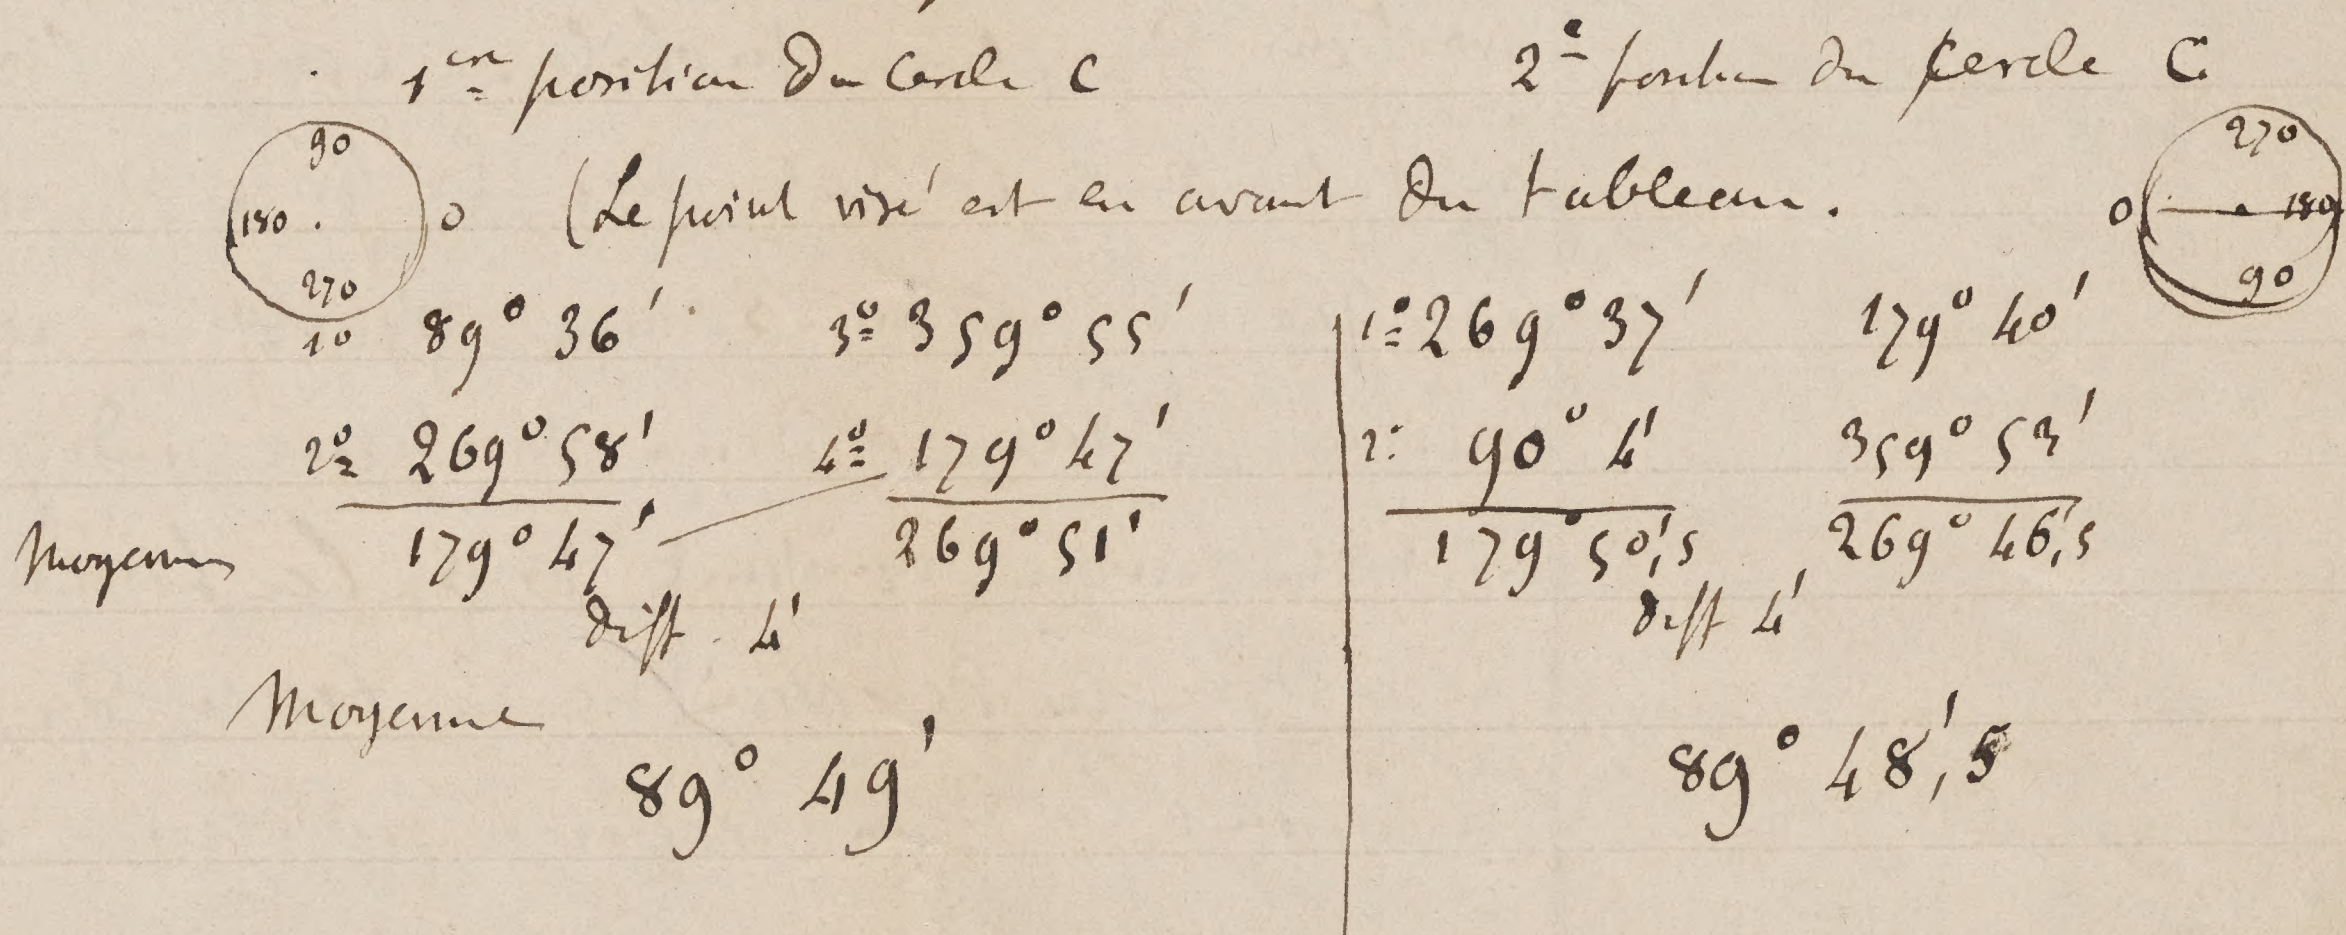 1ère position du Cercle C
2e position du Cercle C
90
180 . 0
270
(Le point visé est en avant du tableau.
270
0 180
90
1o 89° 36' 3o 359° 55'
2o 269° 58' 4o 179° 47'
Moyennes 179° 47' 269° 51'
diff. 4'
Moyenne
89° 49'
1o 269° 37' 179° 40'
2o 90° 4' 359° 53'
179° 50',5 269° 46',5
diff 4'
89° 48',5